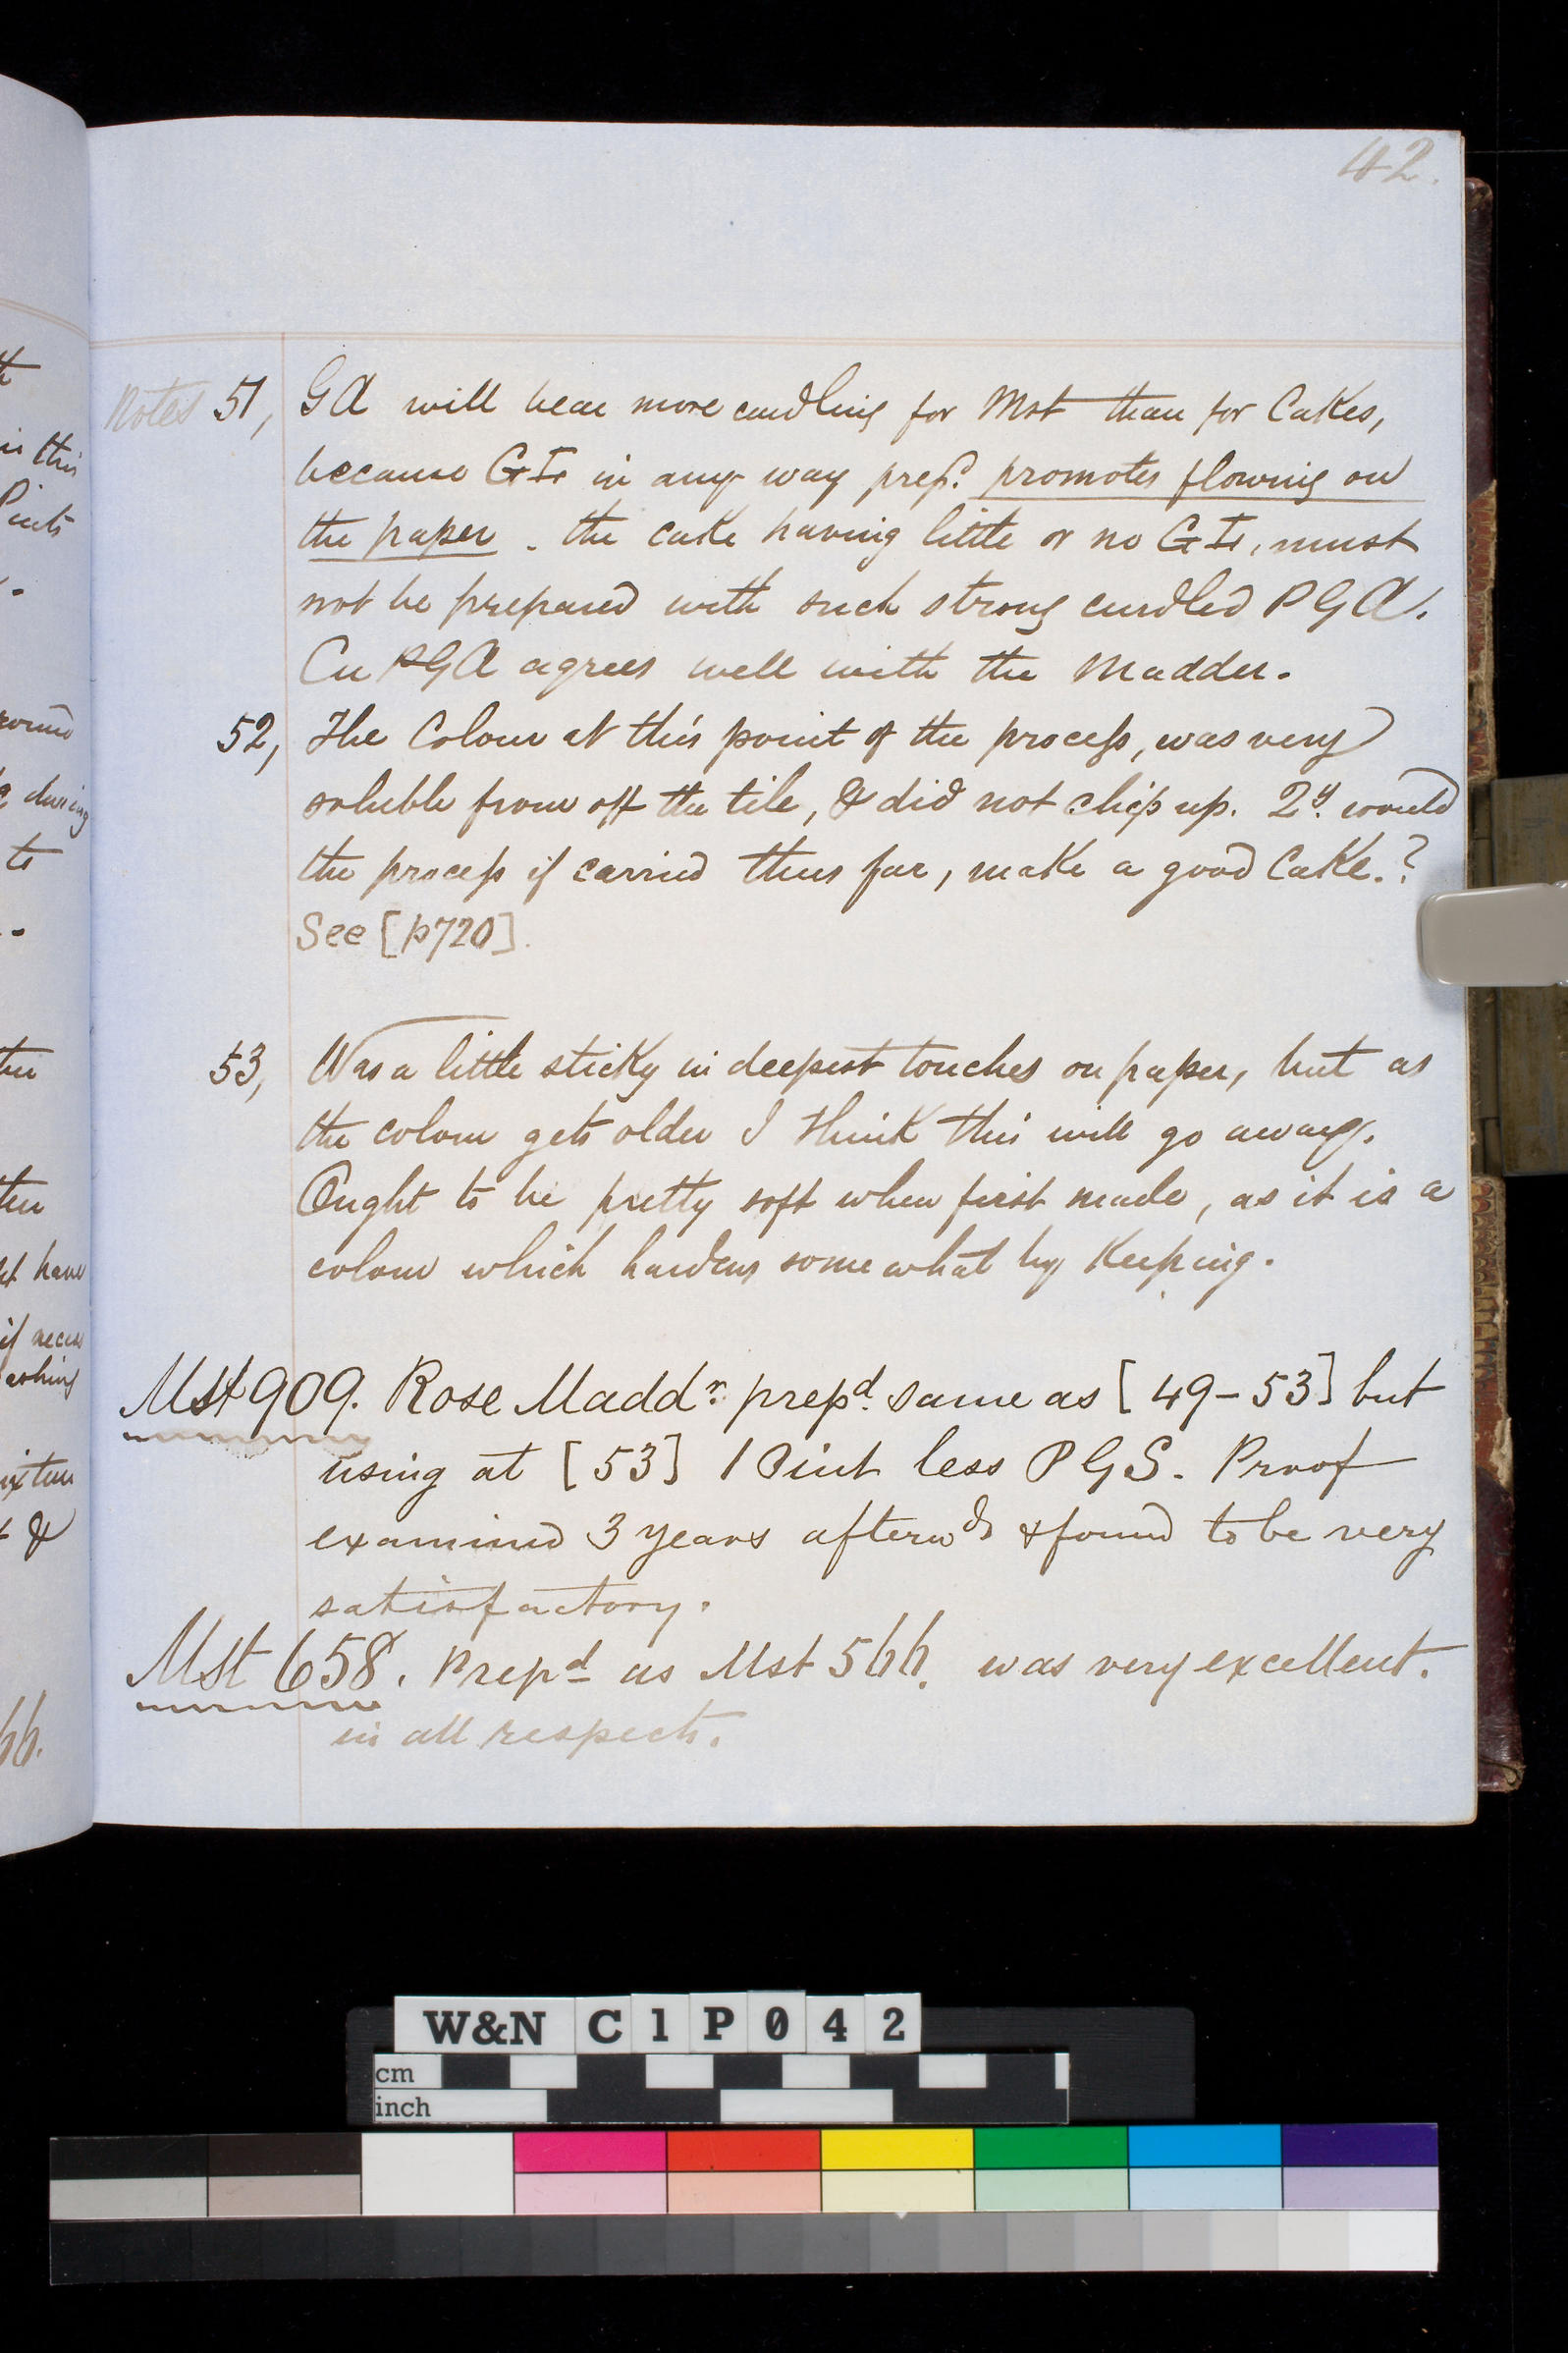 42.
Notes 51, GA will bear more curdling for Mst than for Cakes,
because GIs in any way prepd. promotes flowing on
the paper. the cake having little or no GIs, must
not be prepared with such strong curdled PGA.
Cu PGA agrees well with the Madder.
52, The Colour at this point of the process, was very
soluble from off the tile, & did not chip up. 2y. would
the process if carried thus far, make a good Cake.?
See [p720].
53, Was a little sticky in deepest touches on paper, but as
the colour gets older I think this will go away.
Ought to be pretty soft when first made, as it is a
colour which hardens somewhat by Keeping.
Mst 909. Rose Maddr. prepd. same as [49-53] but
using at [53] 1 Pint less PGS. Proof
examined 3 years afterwds & found to be very
satisfactory.
Mst 658. Prepd as Mst 566. was very excellent.
in all respects.
W&N C1P042
cm
inch